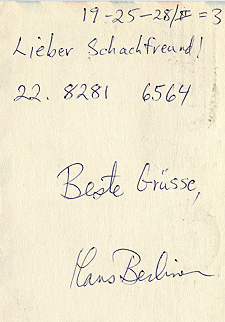 19-25-28/III = 3
Lieber Schachfreund!
22. 8281 6564
Beste Grüsse,
Hans Berliner